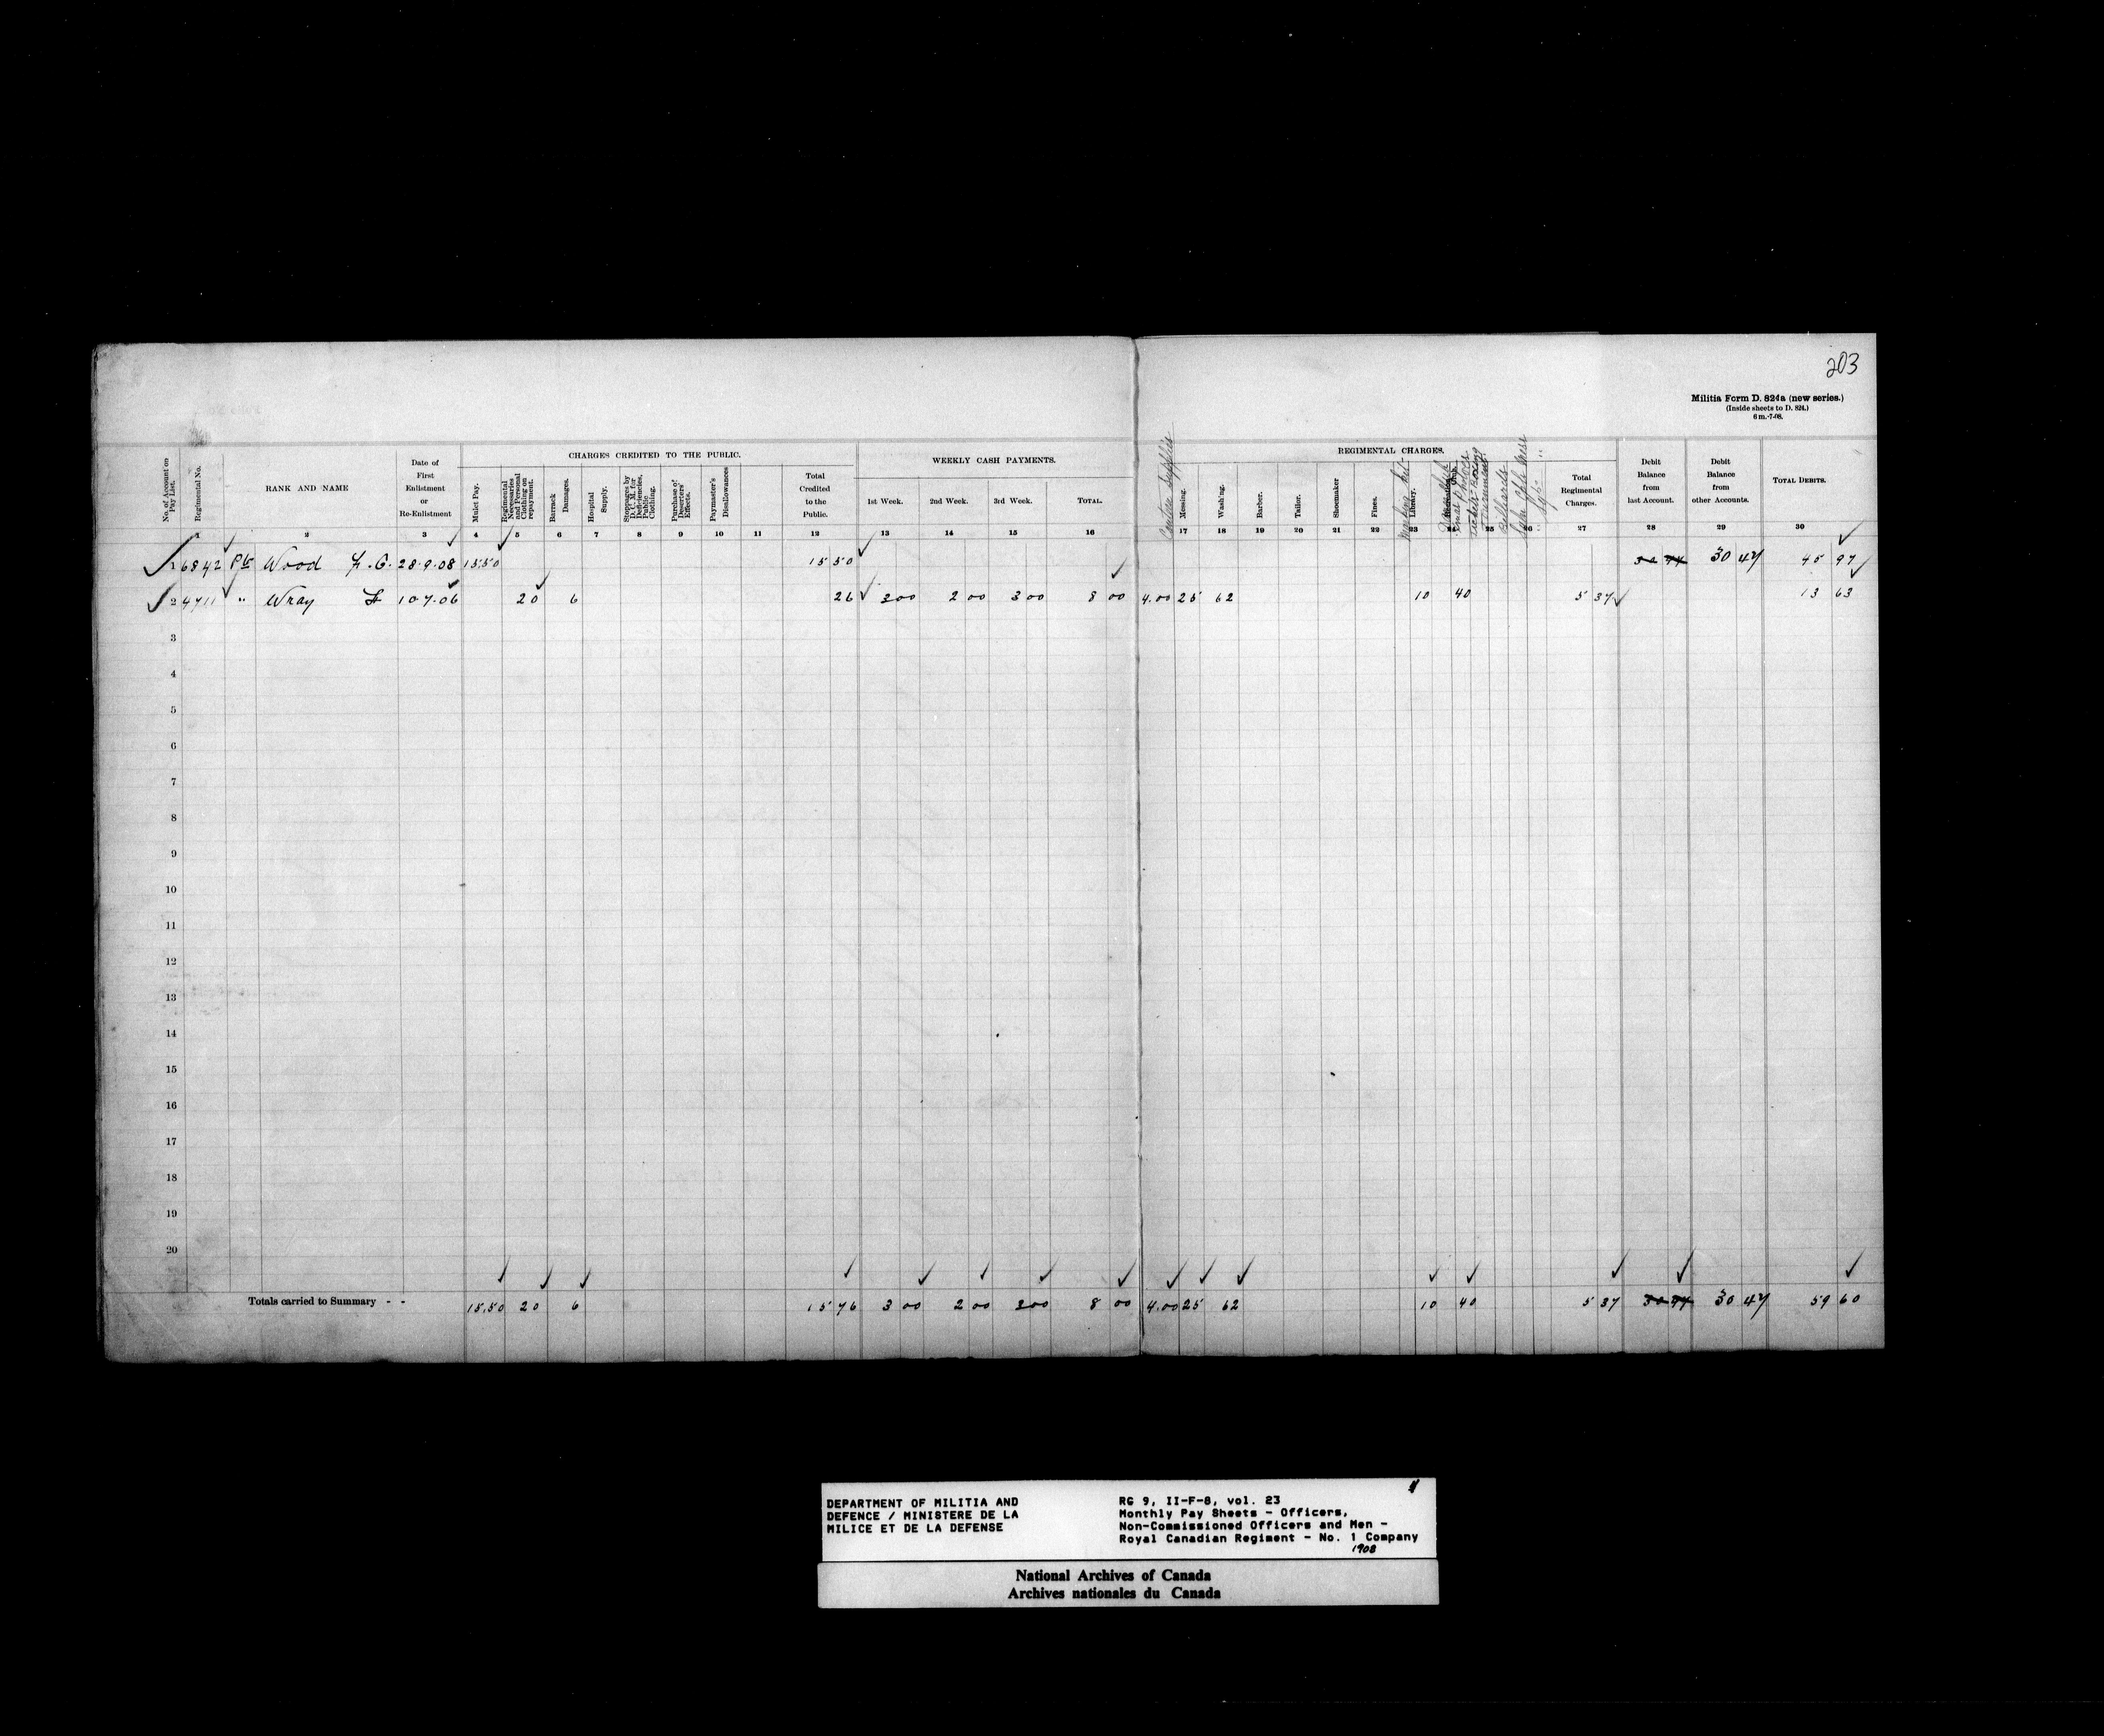 203
Militia Form D. 824a (new series.)
(Inside sheets to D. 824.)
6 m.-7-08.
CHARGES CREDITED TO THE PUBLIC.
WEEKLY CASH PAYMENTS.
REGIMENTAL CHARGES.
No. of Account on Pay List.
Regimental No.
RANK AND NAME
Date of First Enlistment or Re-Enlistment
Mulct Pay.
Regimental Necessaries and Personal Clothing on repayment.
Barrack Damages.
Hospital Supply.
Stoppages by D. C. M. for Deficiencies, Public Clothing.
Purchase of Deserters' Effects.
Paymaster's Disallowances
Total Credited to the Public.
1st Week.
2nd Week.
3rd Week.
TOTAL.
Canteen Supplies
Messing.
Wash'ng.
Barber.
Tailor.
Shoemaker
Fines.
Library.
Billiards
Total Regimental Charges.
Debit Balance from last Account.
Debit Balance from other Accounts.
TOTAL DEBITS.
1 2 3 4 5 6 7 8 9 10 11 12 13 14 15 16 17 18 19 20 21 22 23 24 25 26 27 28 29 30
1 6842 Pte Wood F. G. 28.9.08 15.50 15 50 30 47 45 97
2 4711 " Wray H 10.7.06 20 6 26 3 00 2 00 3 00 8 00 4.00 25 62 10 40 5 37 13 63
3
4
5
6
7
8
9
10
11
12
13
14
15
16
17
18
19
20
Totals carried to Summary - - 15.50 20 6 15 76 3 00 2 00 3 00 8 00 4.00 25 62 10 40 5 37 30 47 59 60
DEPARTMENT OF MILITIA AND
DEFENCE / MINISTERE DE LA
MILICE ET DE LA DEFENSE
RG 9, II-F-8, vol. 23
Monthly Pay Sheets - Officers,
Non-Commissioned Officers and Men -
Royal Canadian Regiment - No. 1 Company
1908
National Archives of Canada
Archives nationales du Canada